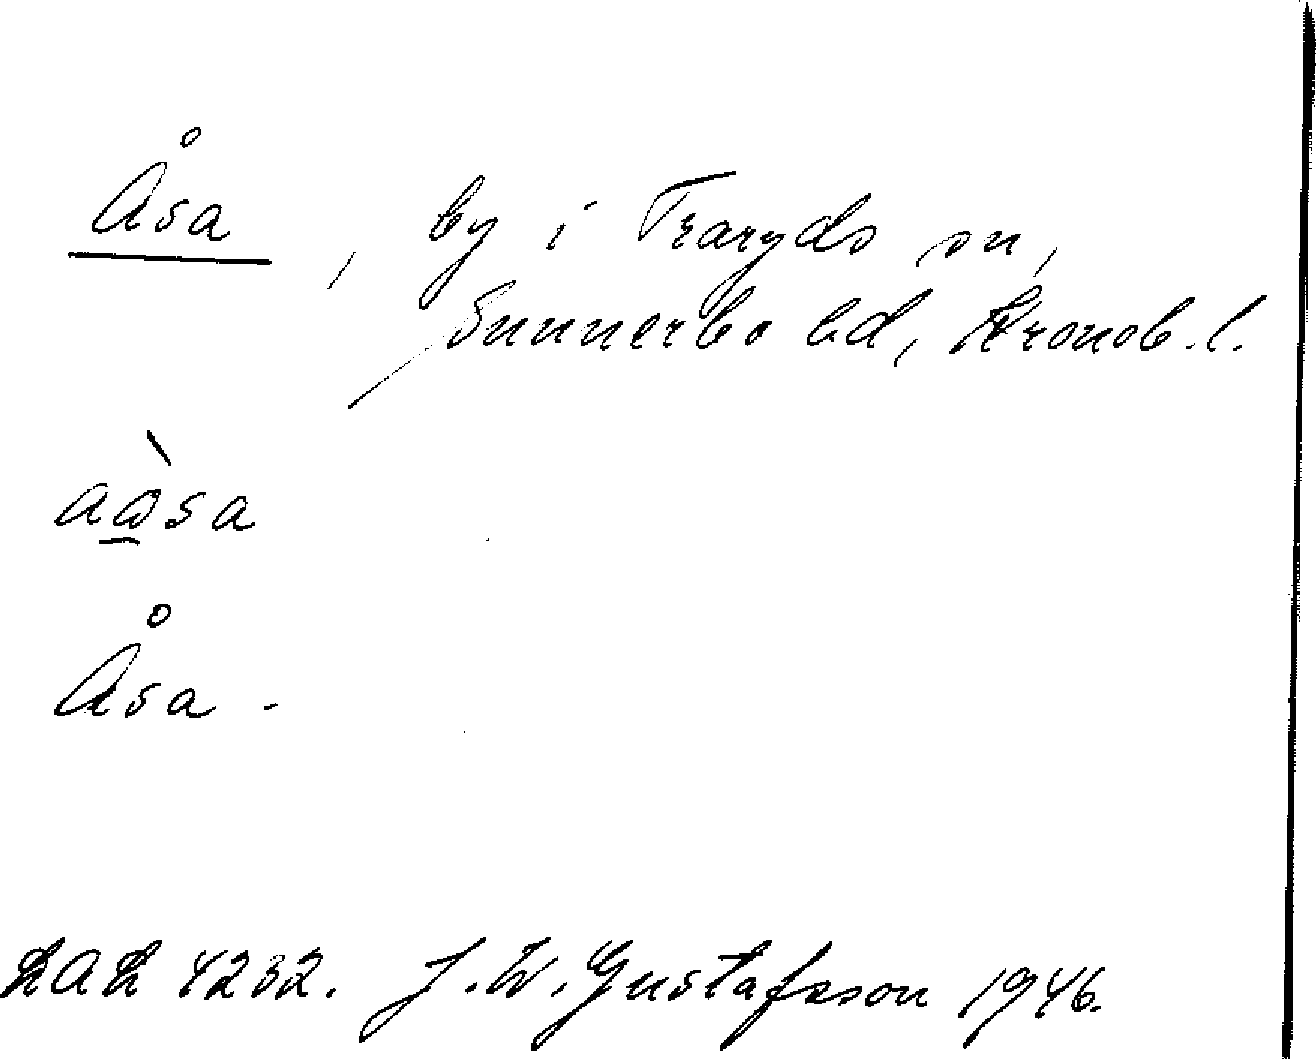 Åsa, by i Traryds sn,
Sunnerbo hd, Kronob. l.
aà̠sa
Åsa -
LAL 4232. J.W. Gustafsson 1946.